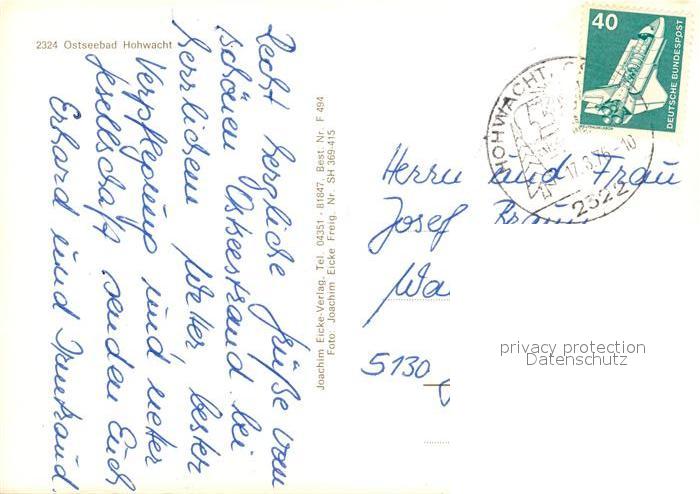 2324 Ostseebad Hohwacht
Recht herzliche Grüße vom
schönen Ostseestrand bei
herrlichem Wetter, bester
Verpflegung und netter
Gesellschaft senden Euch
Erhard und Irmtraud.
Joachim Eicke-Verlag, Tel. 04351 - 81847, Best. Nr. F 494
Foto: Joachim Eicke Freig. Nr. SH 369-415
40
DEUTSCHE BUNDESPOST
HOHWACHT, OS
17.8.76-10
2322
Herrn und Frau
Josef
5130
privacy protection
Datenschutz